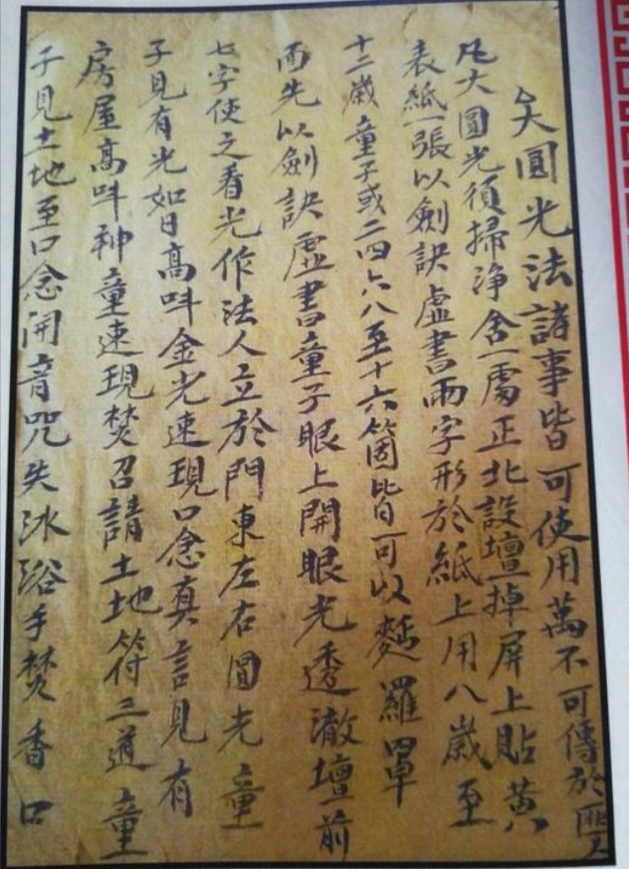 大圓光法諸事皆可使用萬不可傳於匪人
凡大圓光須掃淨舍一處正北設壇掉屏上貼黃
表紙一張以劍訣虛書兩字形於紙上用八歲至
十二歲童子或二四六八至十六箇皆可以麵羅罩
面先以劍訣虛書童子眼上開眼光透澈壇前
七字使之看光作法人立於門東左右圓光童
子見有光如日高呌金光速現口念真言見有
房屋高呌神童速現焚召請土地符三道童
子見土地至口念開音咒失沐浴手焚香口